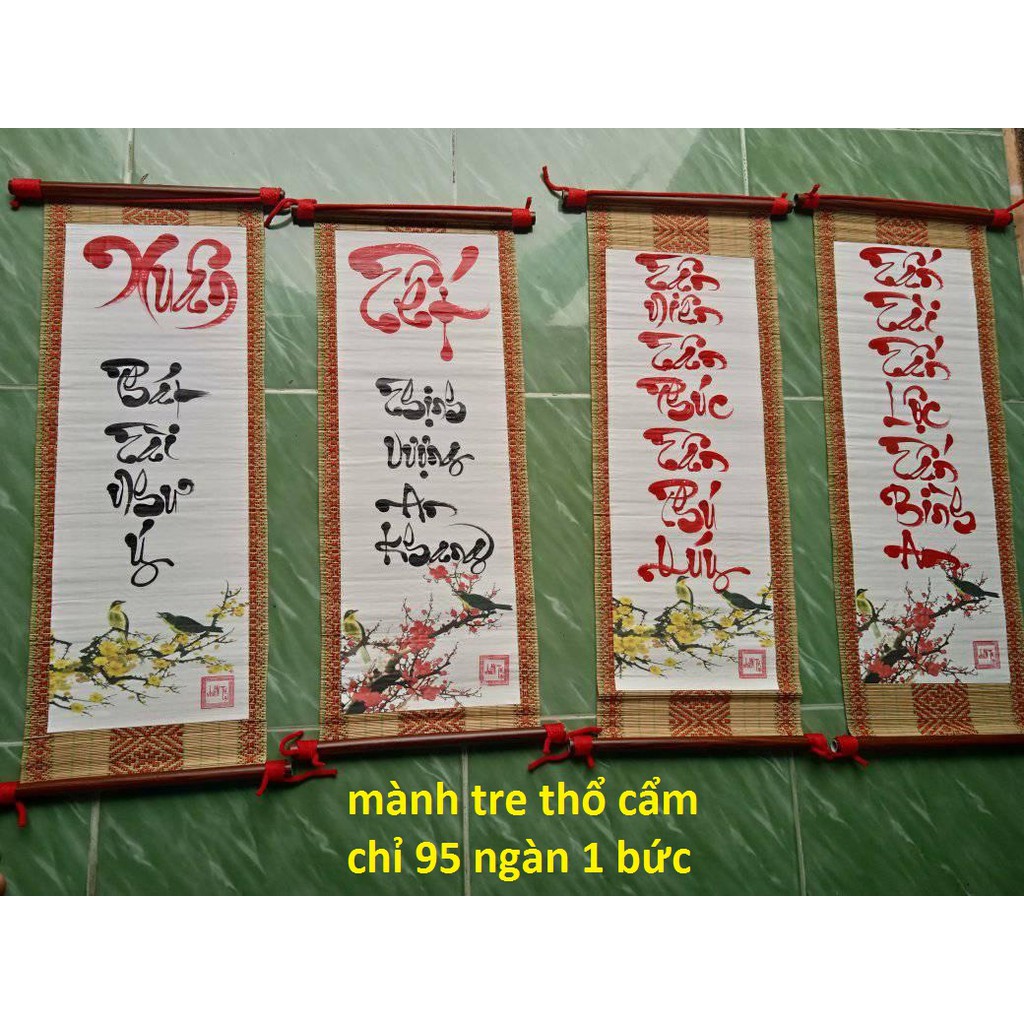 Xuân
Phát
Tài
Như
Ý
Tết
Thịnh
Vượng
An
Khang
Tân
Niên
Tân
Phúc
Tân
Phú
Quý
Tấn
Tài
Tấn
Lộc
Tấn
Bình
An
mành tre thổ cẩm
chỉ 95 ngàn 1 bức